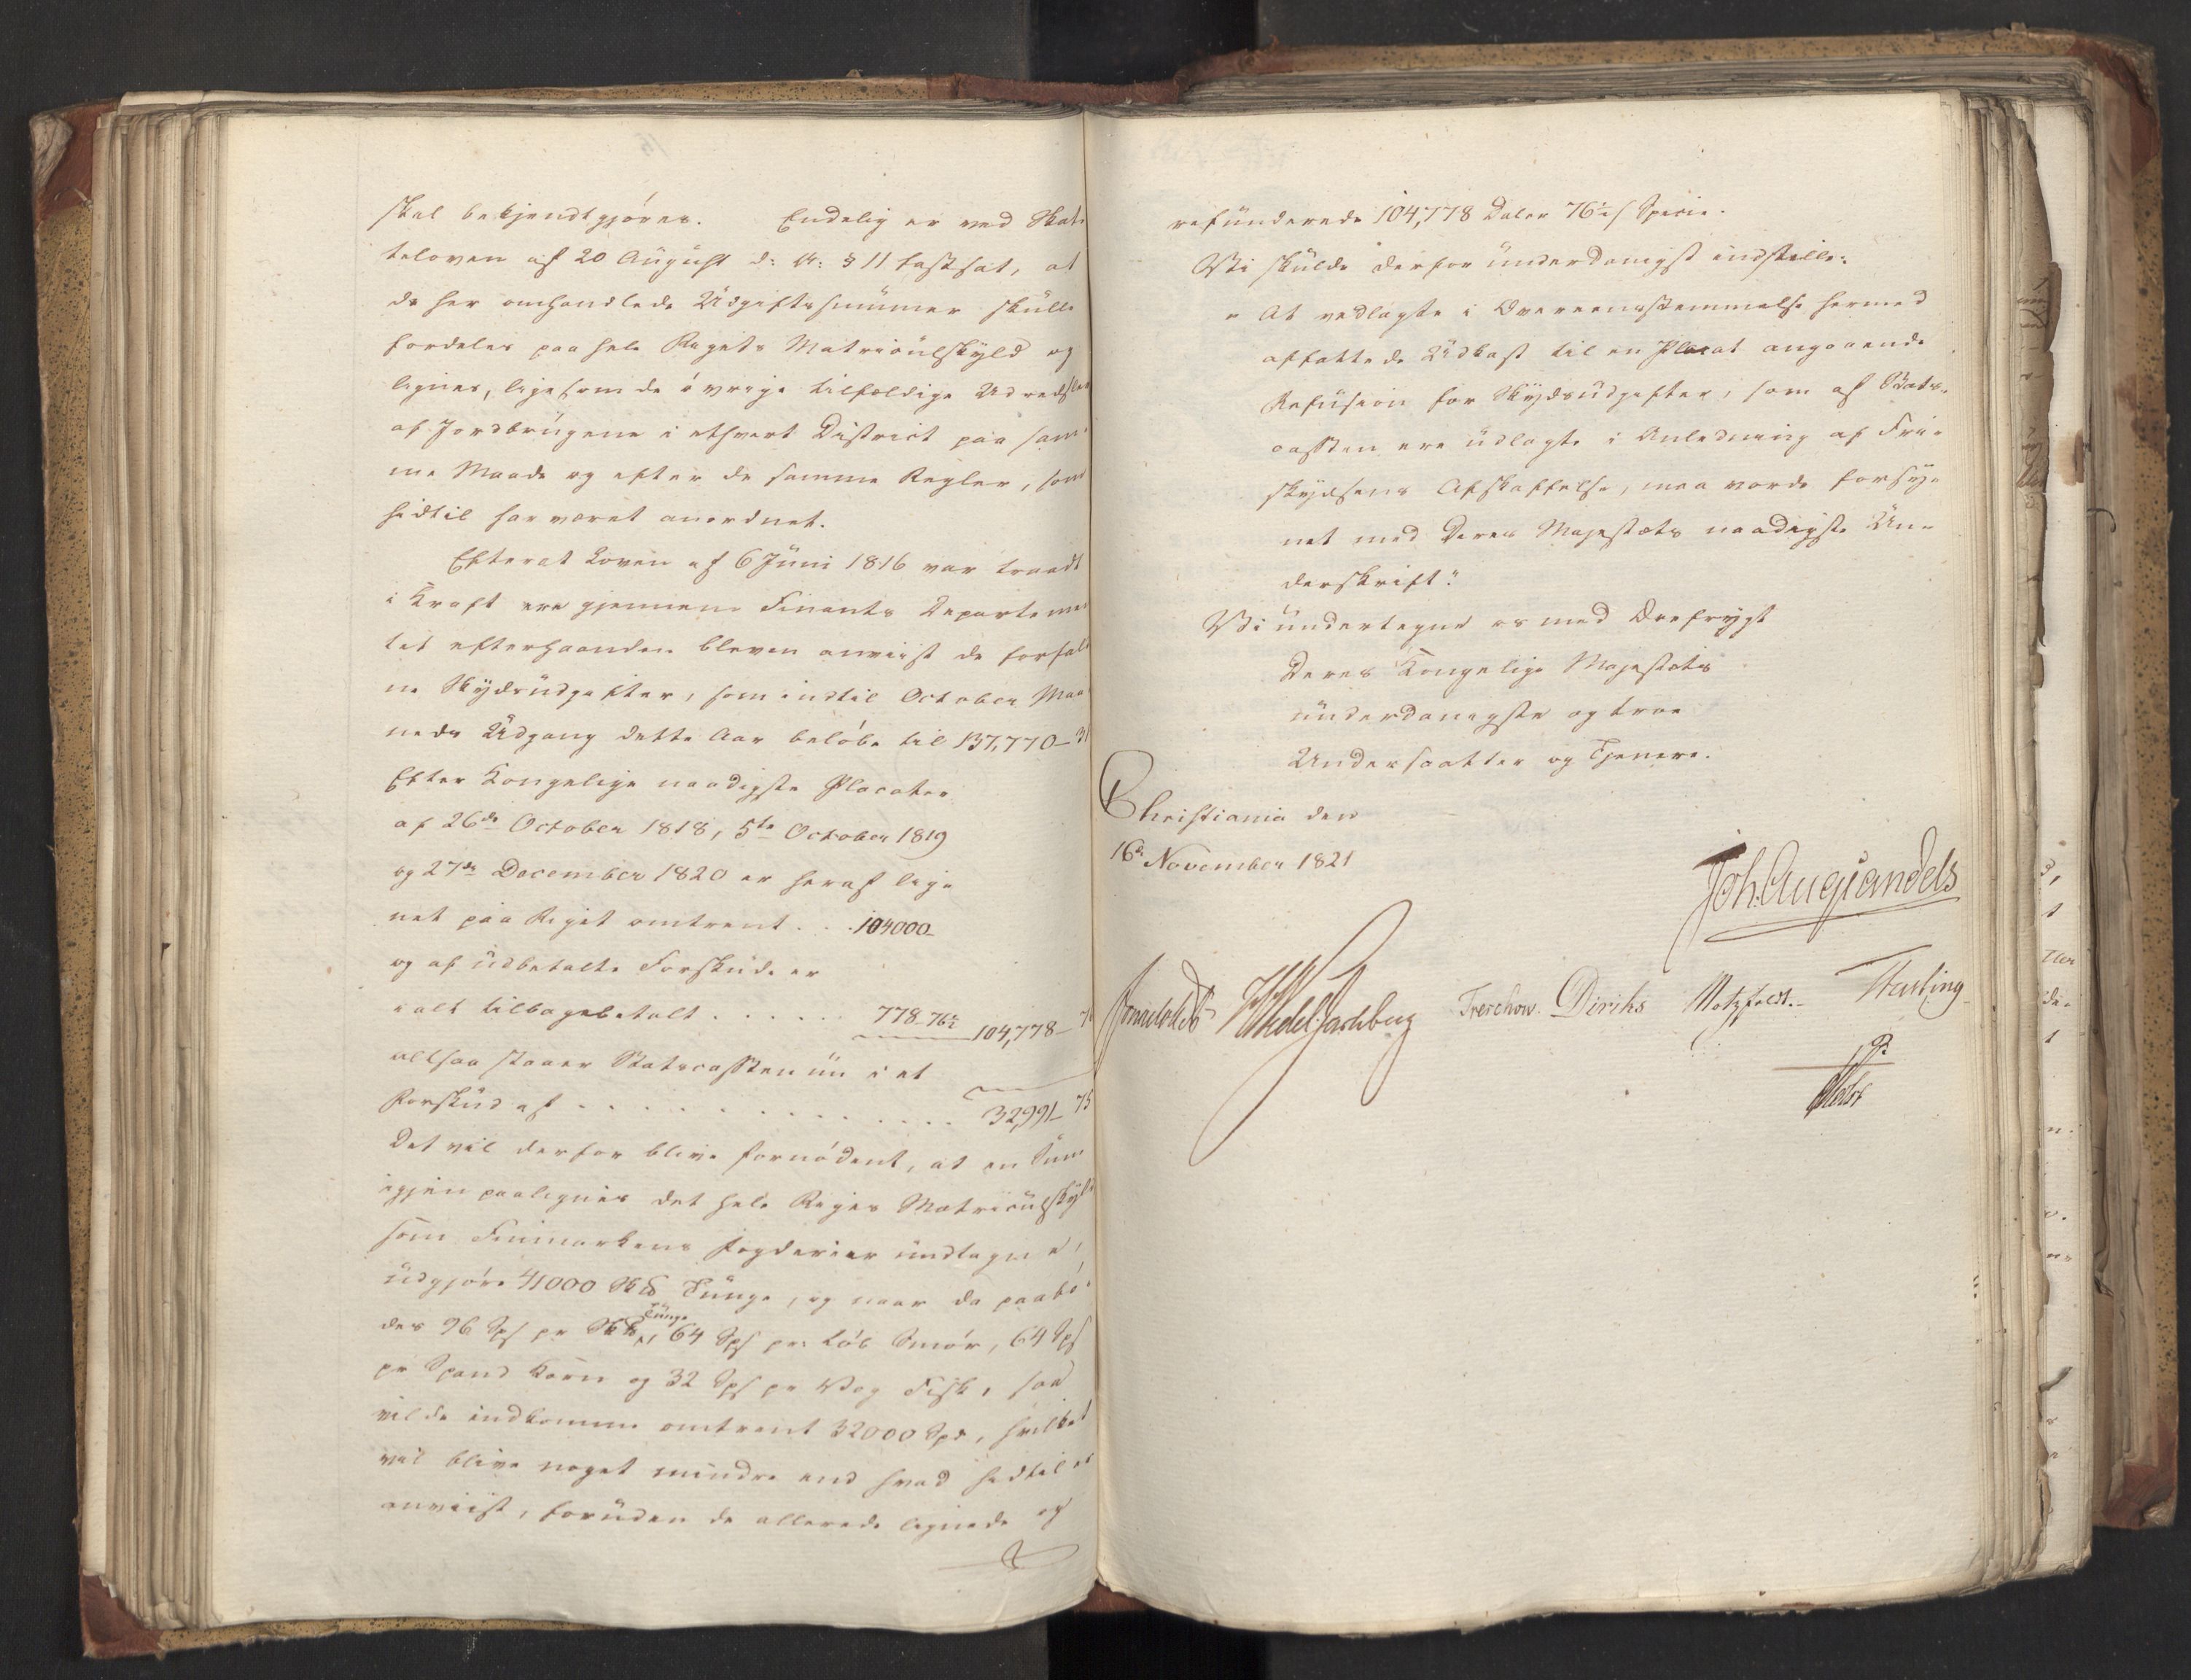 skal bekjendtgjøres. Endelig er ved Skat-
teloven af 20 August d: A: § 11 fastsat, at
de her omhandlede Udgiftssummer skulle
fordeles paa hele Rigets Matriculskyld og
lignes, ligesom de øvrige tilfældige Udredsler
af Jordbrugene i ethvert District paa sam-
me Maade og efter de samme Regler, som
hidtil har været anordnet.
Efterat Loven af 6 Juni 1816 var traadt
i Kraft ere gjennem Finants Departemen
tet efterhaanden bleven anviist de forfald
ne Skydsudgifter, som indtil October Maa
neds Udgang dette Aar beløbe til 137,770-31
Efter Kongelige naadigste Placater
af 26de October 1818, 5te October 1819
og 27de December 1820 er heraf lig-
net paa Riget omtrent . . . 104000-
og af udbetalte Forskud er
ialt tilbagebetalt . . . . . . 778-76½ 104,778-7
altsaa staaer Statscassen nu i et
Forskud af . . . . . . . . . . . . 32,991-75
Det vil derfor blive fornødent, at en Sum
igjen paalignes det hele Riges Matriculskyld
som Finmarkens Fogderier undtagne,
udgjøre 41000 Sk℔ Tunge, og naar da paabø-
des 96 Sps pr Sk℔ Tunge, 64 Sps pr: Løb Smør, 64 Sps
pr Spand Korn og 32 Sps pr Vog Fisk, saa
vilde indkomme omtrent 32000 Spd, hvilket
vil blive noget mindre end hvad hidtil er
anviist, foruden de allerede lignede og
refunderede 104,778 Daler 76½ s Specie.
Vi skulde derfor underdanigst indstille:
" At vedlagte i Overeensstemmelse hermed
affattede Udkast til en Placat angaaende
Refusion for Skydsudgifter, som af Stats-
cassen ere udlagte i Anledning af Fri-
skydsens Afskaffelse, maa vorde forsy-
net med Deres Majestæts naadigste Un-
derskrift."
Vi undertegne os med Ærefrygt
Deres Kongelige Majestæts
underdanigste og troe
Undersaatter og Tjenere.
Christiania den
16de November 1821
Joh. Aug: Sandels
Sommerhielm Wedel Jarlsberg Treschow. Diriks Motzfeldt.- Fasting